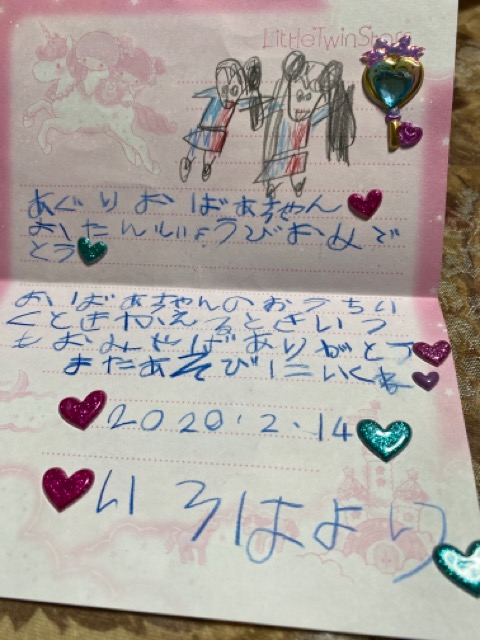 LittleTwinStars
あぐりおばあちゃん
おたんじょうびおめで
とう
おばあちゃんのおうちい
くときかえるときいつ
もおみやげありがとう
またあそびにいくね
2020.2.14
いろはより